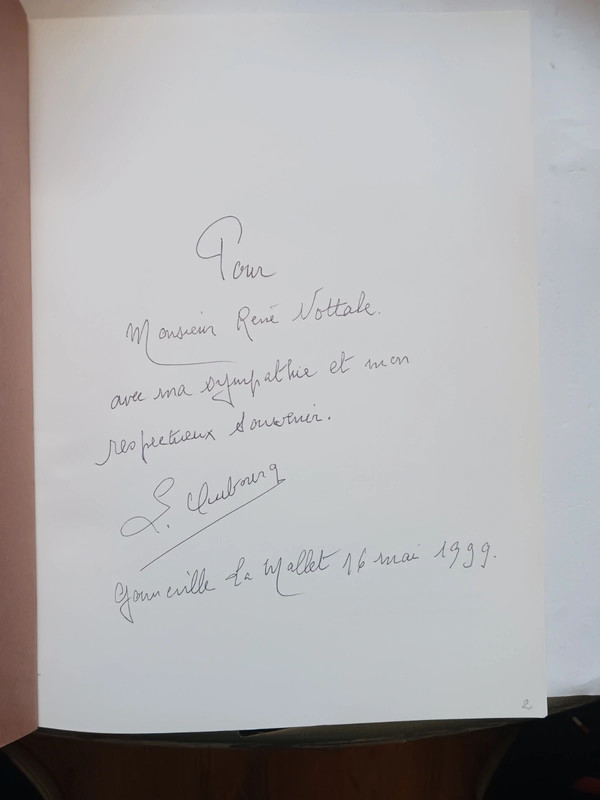 Pour
Monsieur René Nottale.
avec ma sympathie et mon
respectueux Souvenir.
L. Aubourg
Gonneville La Mallet 16 mai 1999.
2